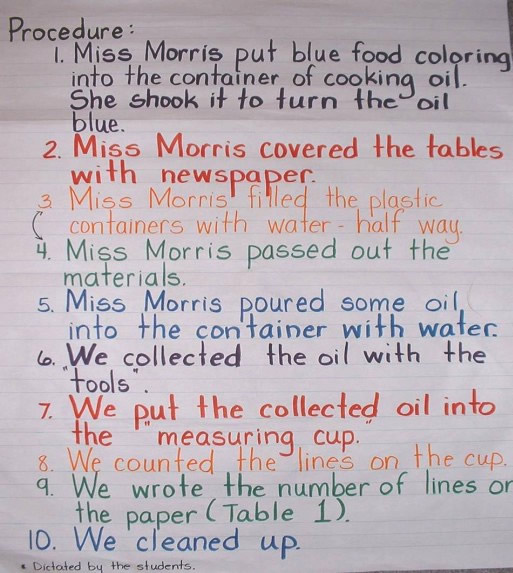 Procedure:
1. Miss Morris put blue food coloring
into the container of cooking oil.
She shook it to turn the oil
blue.
2. Miss Morris covered the tables
with newspaper.
3 Miss Morris filled the plastic
containers with water - half way.
4. Miss Morris passed out the
materials.
5. Miss Morris poured some oil
into the container with water.
6. We collected the oil with the
"tools".
7. We put the collected oil into
the "measuring cup."
8. We counted the lines on the cup.
9. We wrote the number of lines or
the paper (Table 1).
10. We cleaned up.
* Dictated by the students.